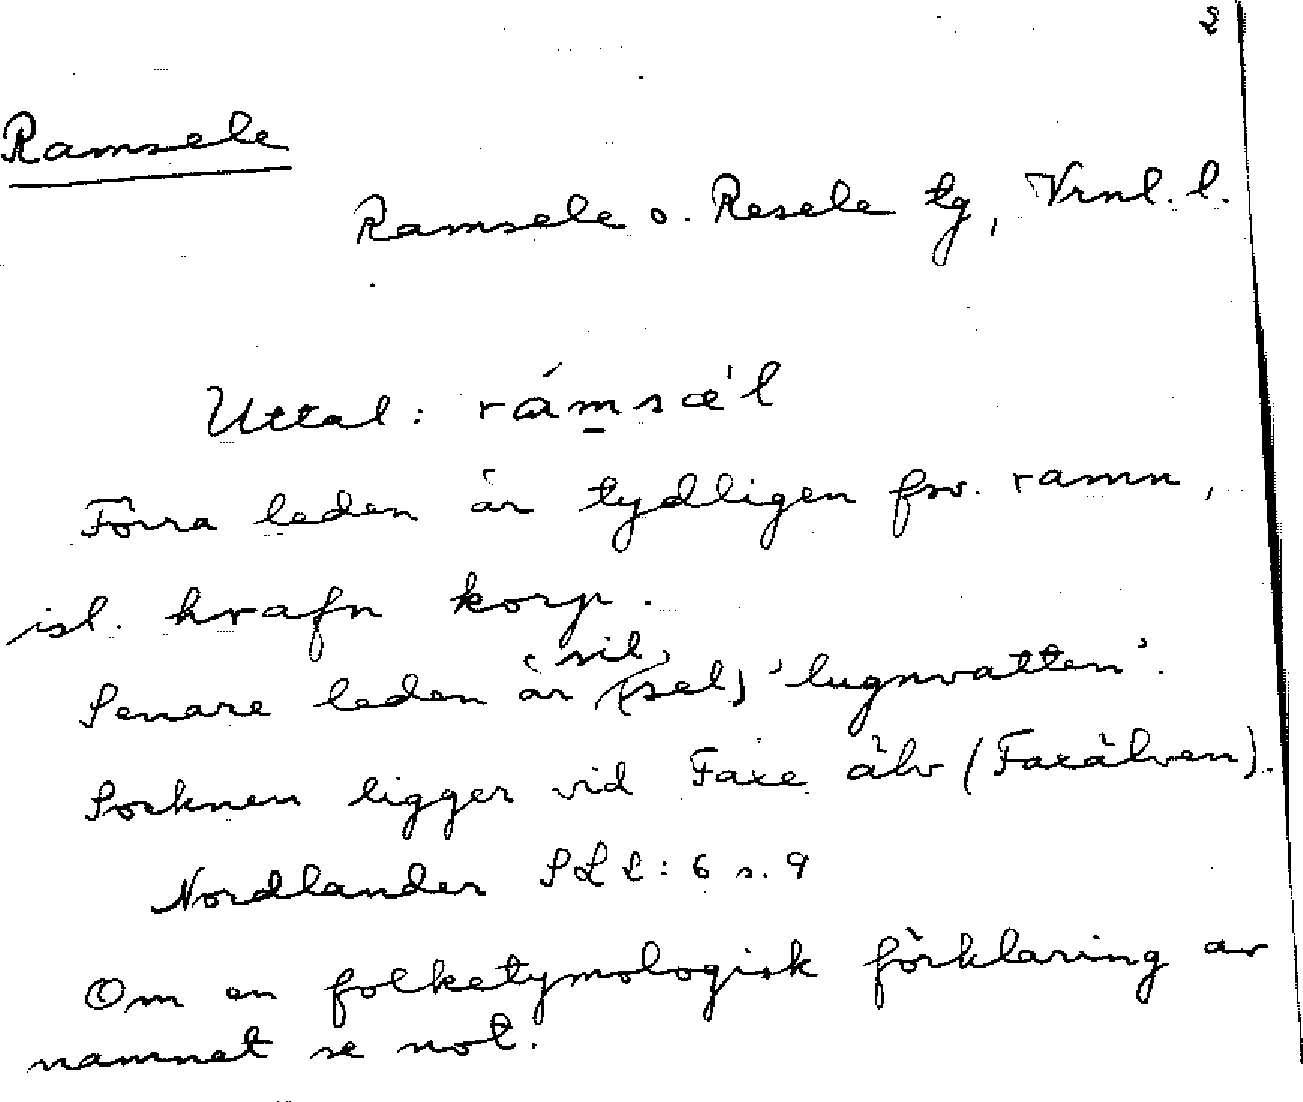 2
Ramsele
Ramsele o. Resele tg, Vrnl. l.
Uttal: rámsæ'l
Förra leden är tydligen fsv. ramn,
isl. hrafn korp.
sil
Senare leden är (sel) 'lugnvatten'.
Socknen ligger vid Faxe älv (Faxälven).
Nordlander SLL: 6 s. 9
Om en folketymologisk förklaring av
namnet se not.